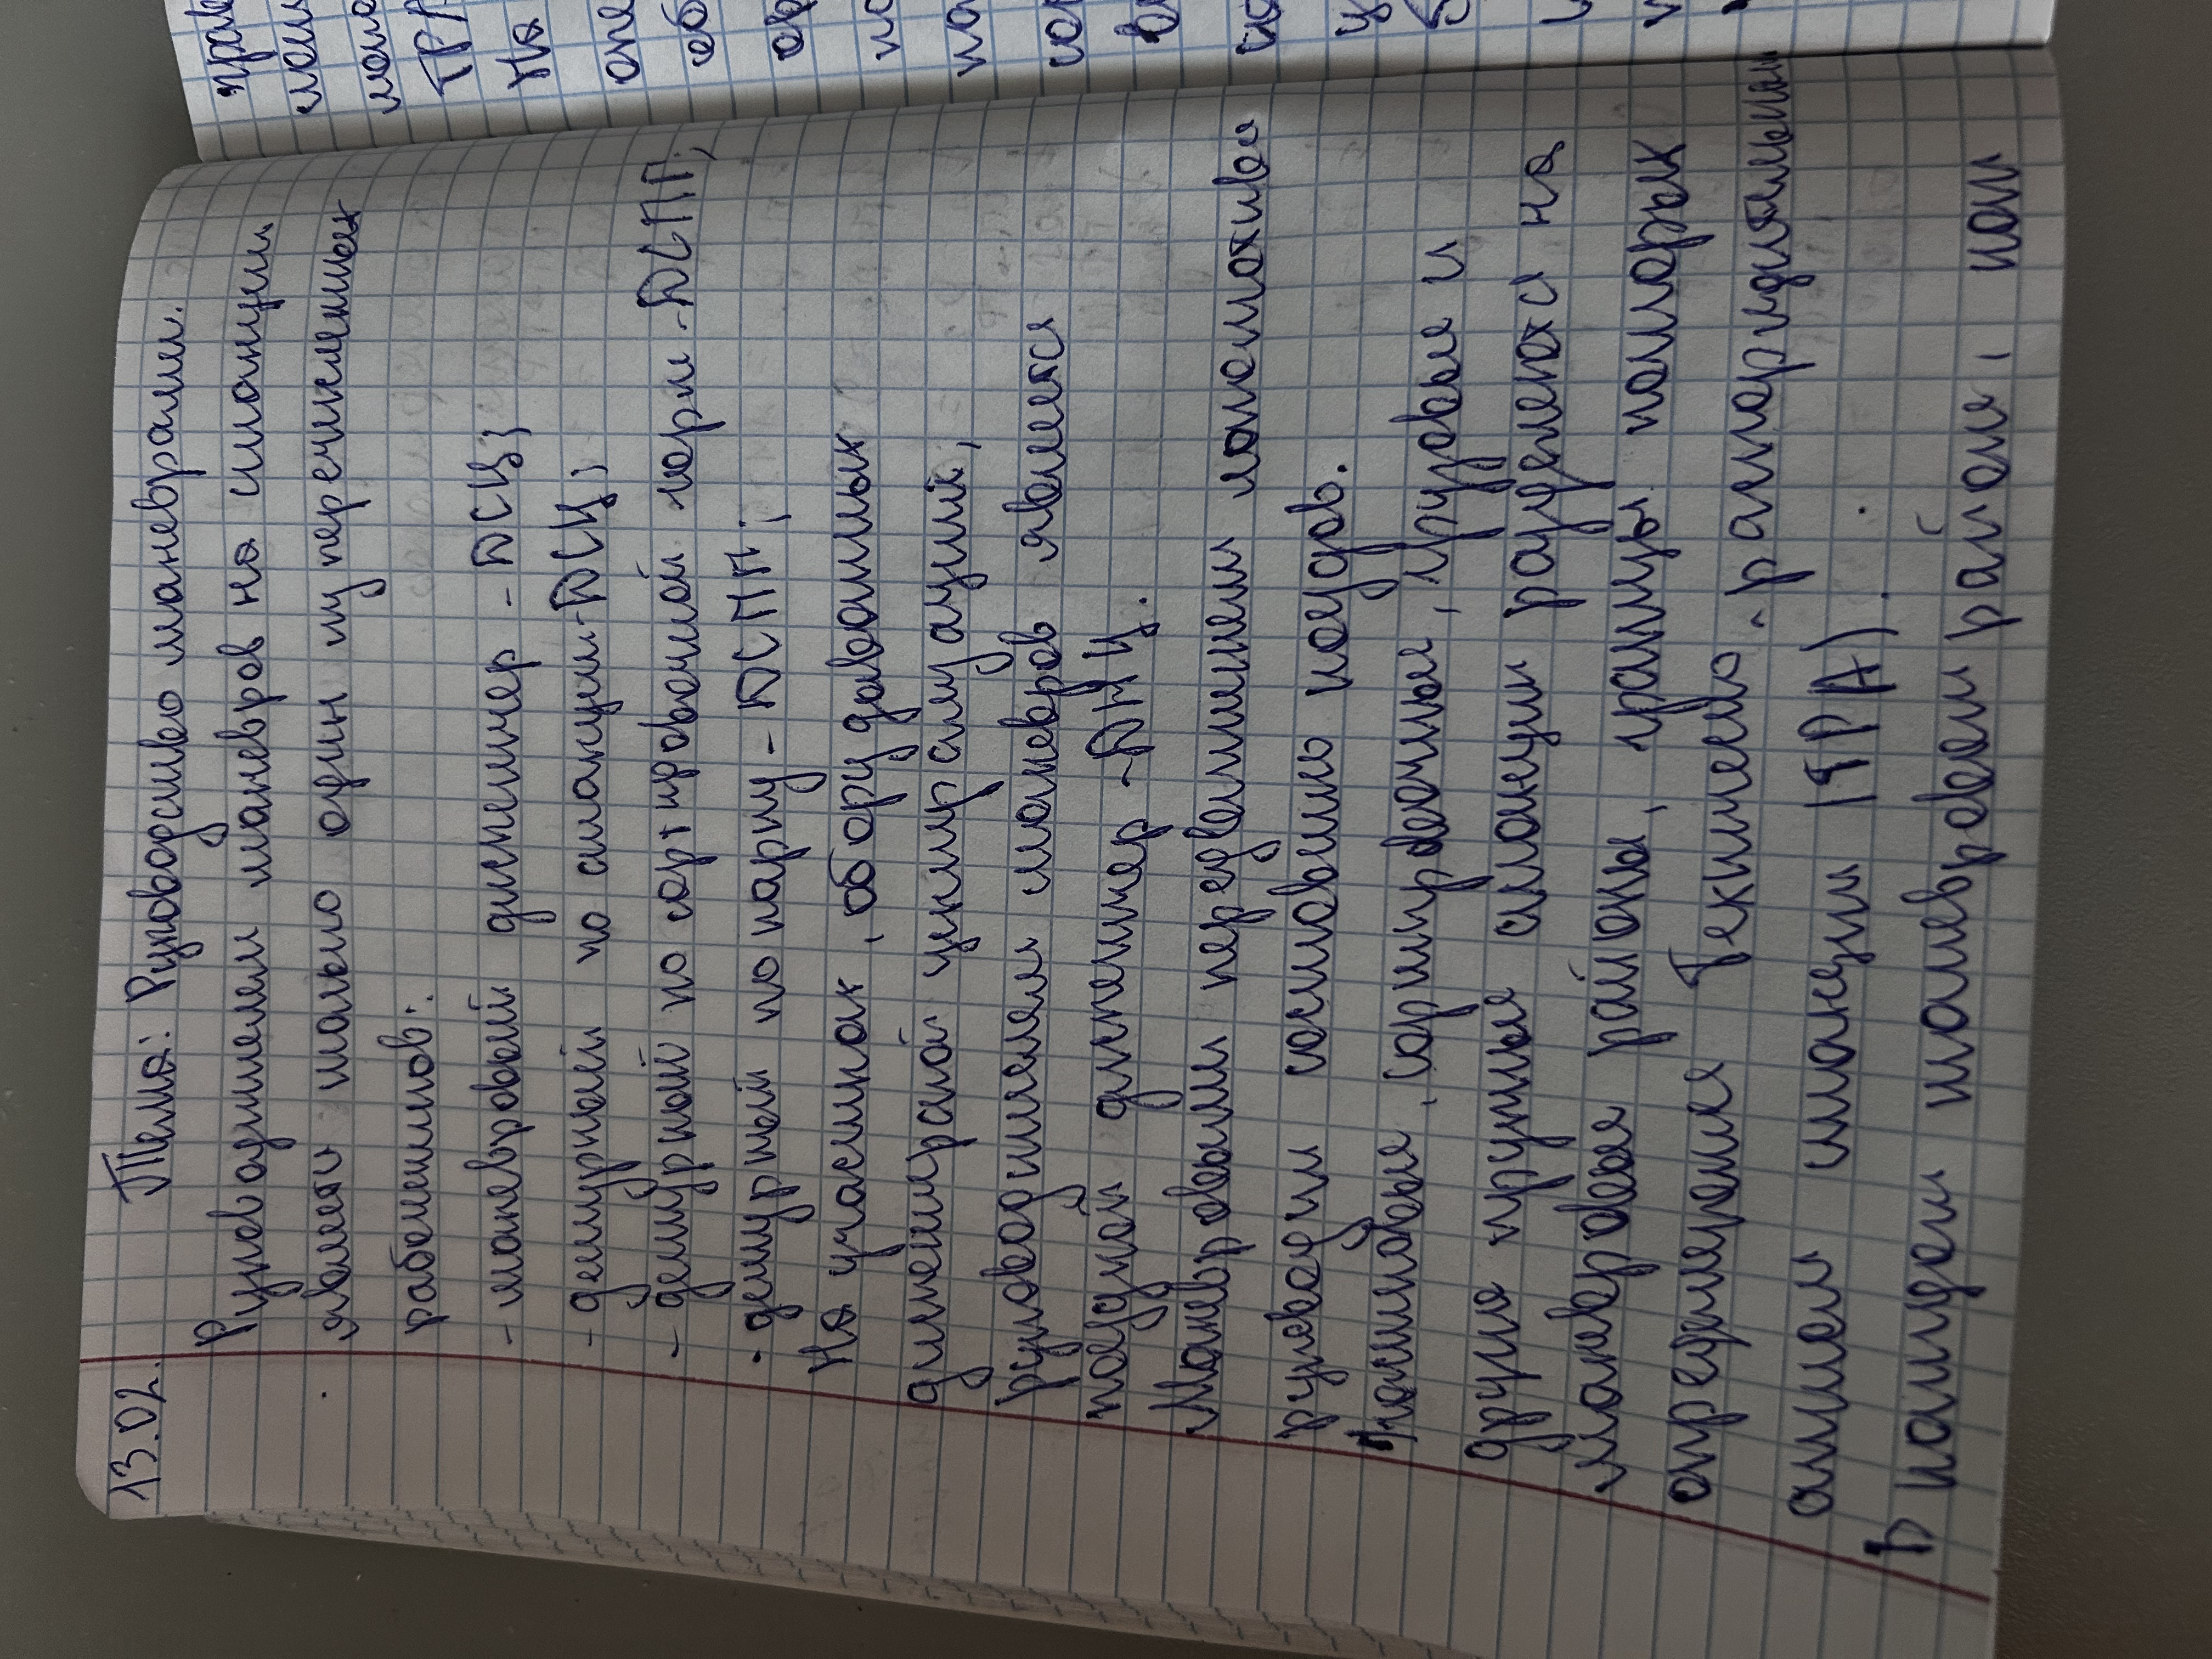 13.02. Тема: Руководство маневрами.
Руководителем маневров на станции
являетс только один из перечисленных
работников:
- маневровый диспетчер - ДСЦ;
- дежурный по станции - ДСЦ;
- дежурный по сортировочной горки - ДСПГ;
- дежурный по парку - ДСПП;
На участках, оборудованных
диспетчерской централизацией,
руководителем маневров является
поездной диспетчер - ДНЦ.
Маневровыми передвижениями локомотивов
руководит составитель поездов.
Пассажирские, сортировочные, грузовые и
другие крупные станции разделяются на
маневровые районы, границы которых
определение Техническо - распорядительным
актом станции (ТРА).
В каждом маневровом районе, как
прав
ман
лока
ТРА
На
опе